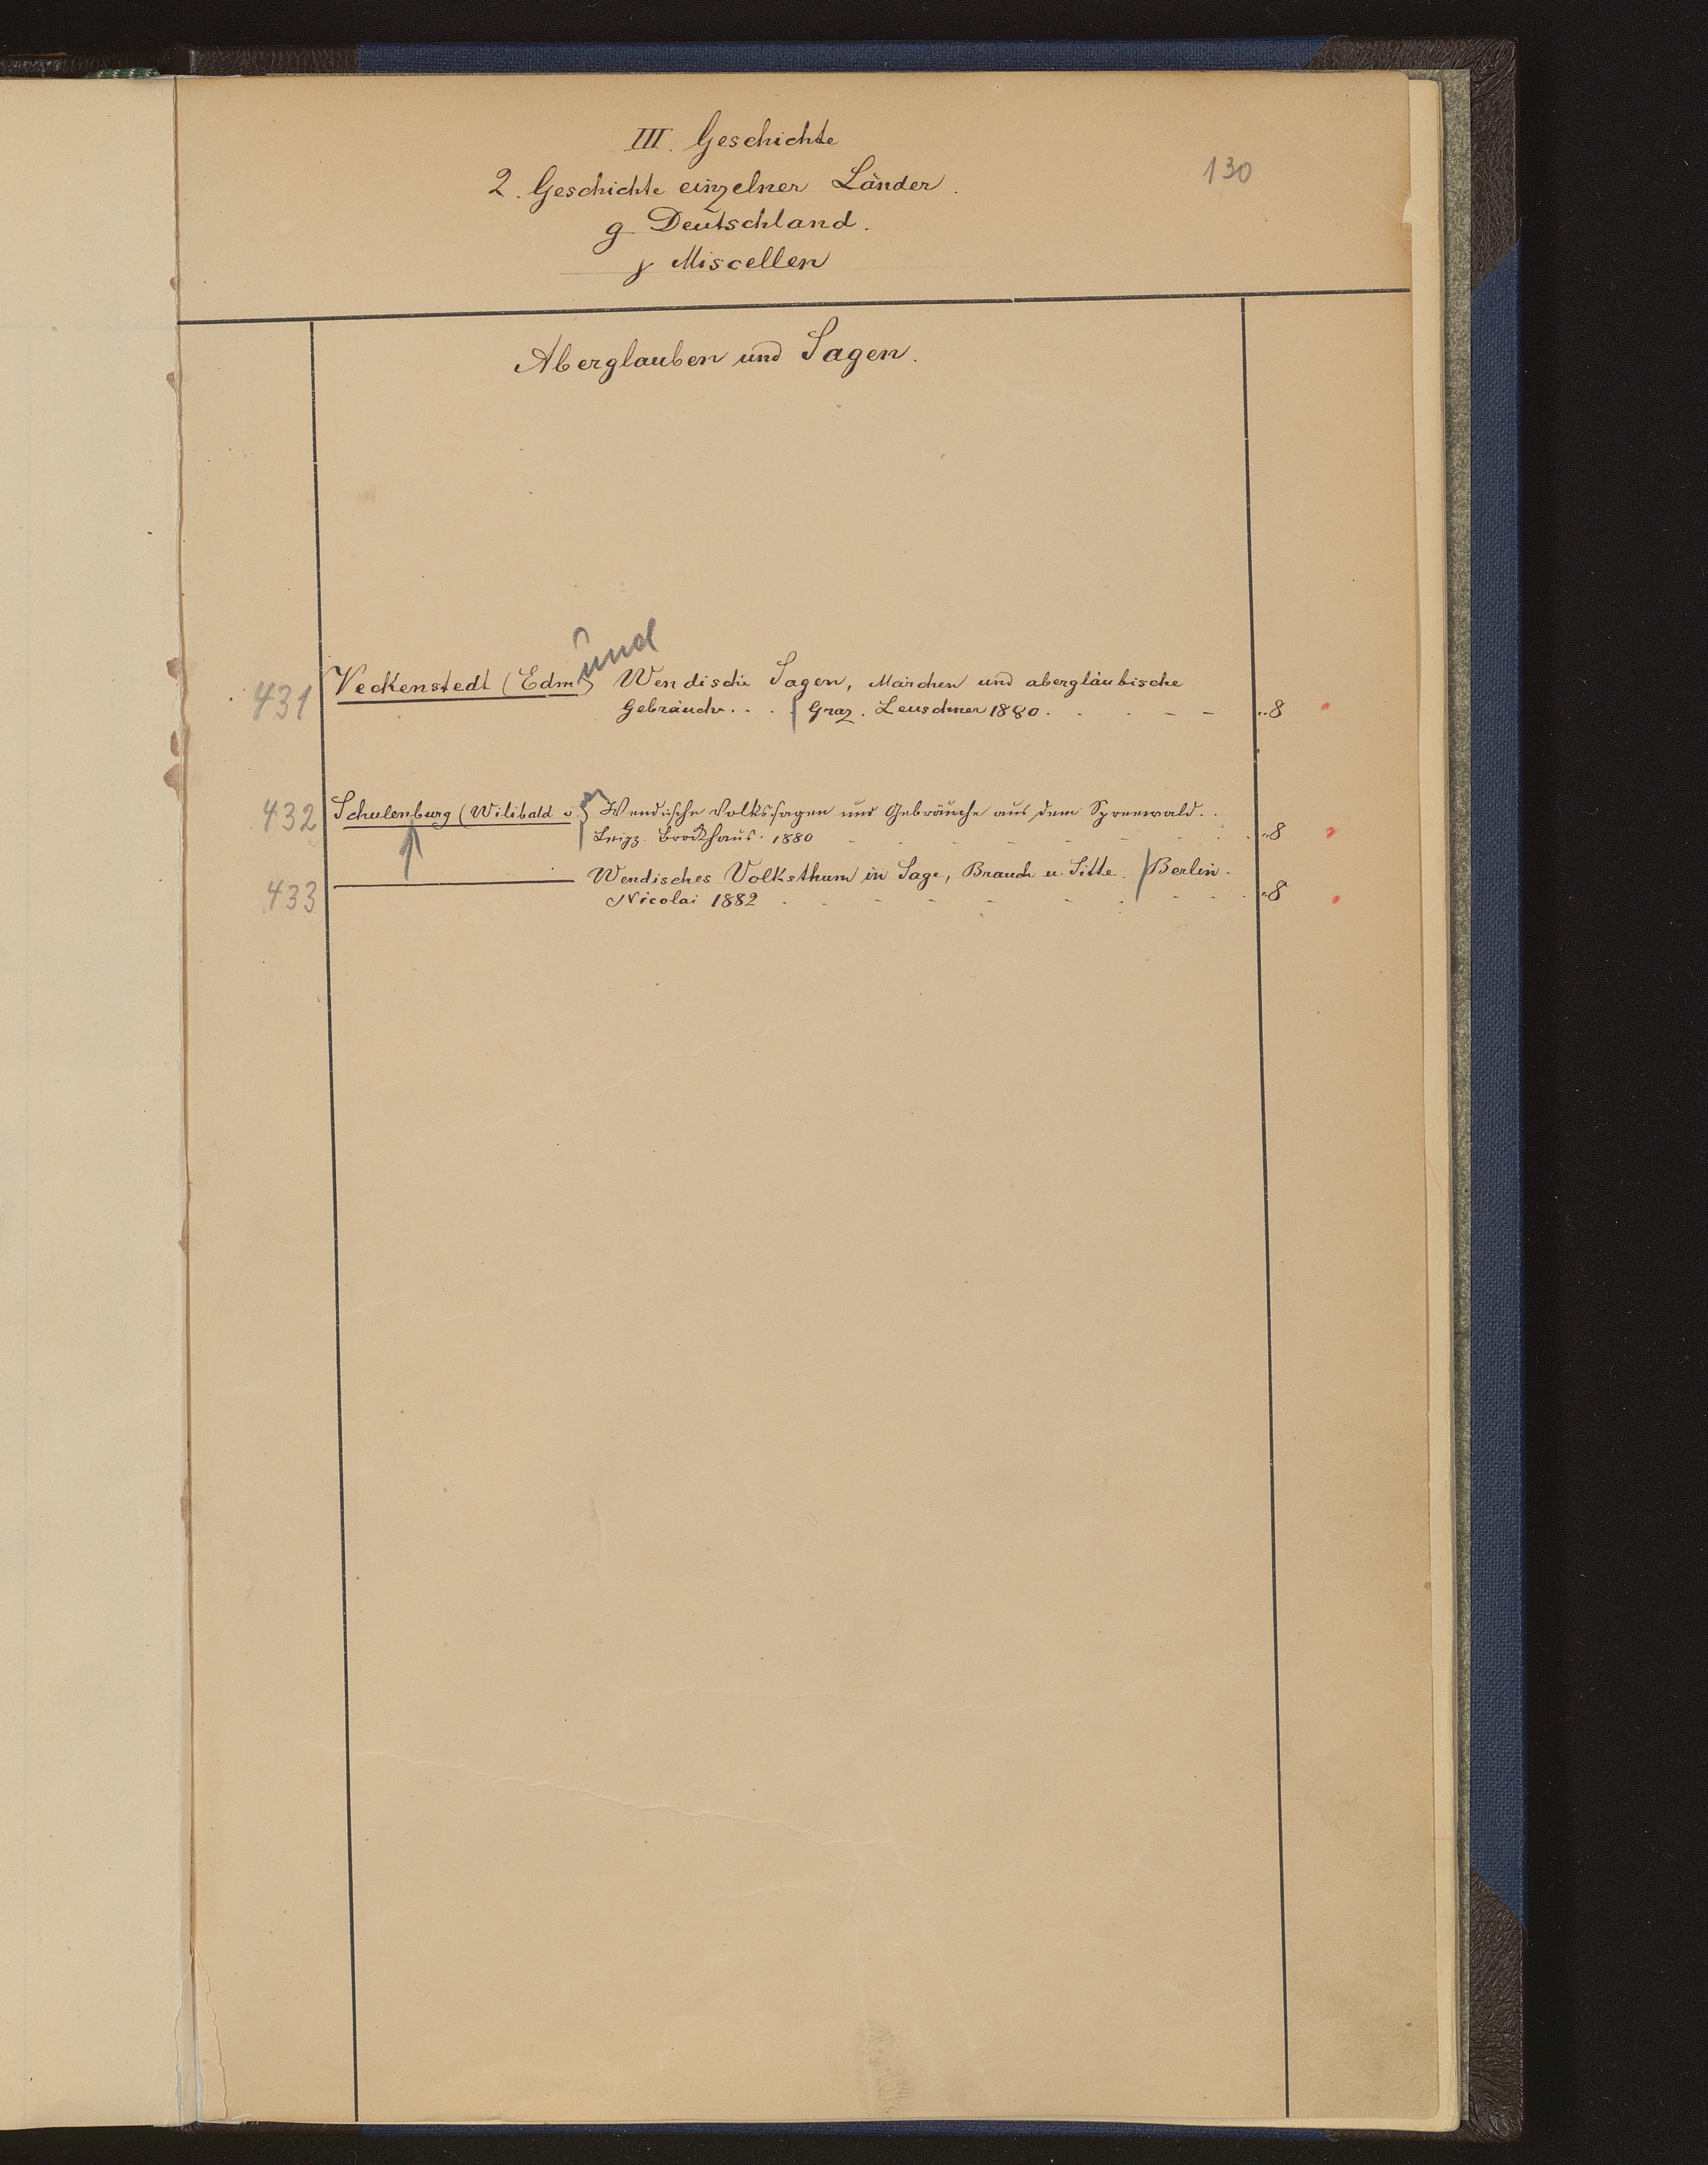 III. Geschichte
130
2. Geschichte einzelner Länder.
g Deutschland.
γ Miscellen
Aberglauben und Sagen.
und
431 Veckenstedt (Edm) Wendische Sagen, Märchen und abergläubische
Gebräuche . . . Graz. Leuschner 1880. . . - - - „8
432 Schulenburg (Wilibald v.) Wendische Volkssagen und Gebräuche aus dem Spreewald. .
Leipz. Brockhaus. 1880 „8
433 ——— Wendisches Volksthum in Sage, Brauch u. Sitte. Berlin.
Nicolai 1882 „8